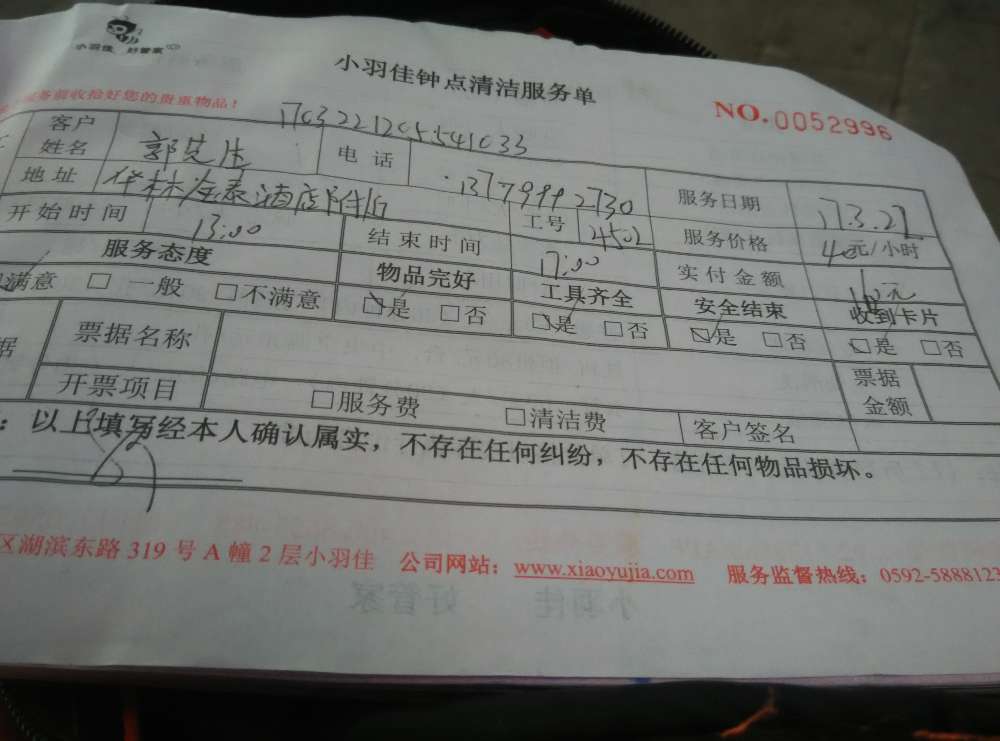 小羽佳 好管家
小羽佳钟点清洁服务单
服务前收拾好您的贵重物品！
NO.0052996
1703221205541033
客户姓名 郭先生 电话 13799992730 服务日期 17.3.22
地址 华林金泰酒店附近 工号 4502 服务价格 40元/小时
开始时间 13:00 结束时间 17:00 实付金额 160元
服务态度 物品完好 工具齐全 安全结束 收到卡片
满意 □一般 □不满意 ☑是 □否 ☑是 □否 ☑是 □否 ☑是 □否
据 票据名称 票据金额
开票项目 □服务费 □清洁费 客户签名
：以上填写经本人确认属实，不存在任何纠纷，不存在任何物品损坏。
区湖滨东路319号A幢2层小羽佳 公司网站：www.xiaoyujia.com 服务监督热线：0592-5888123